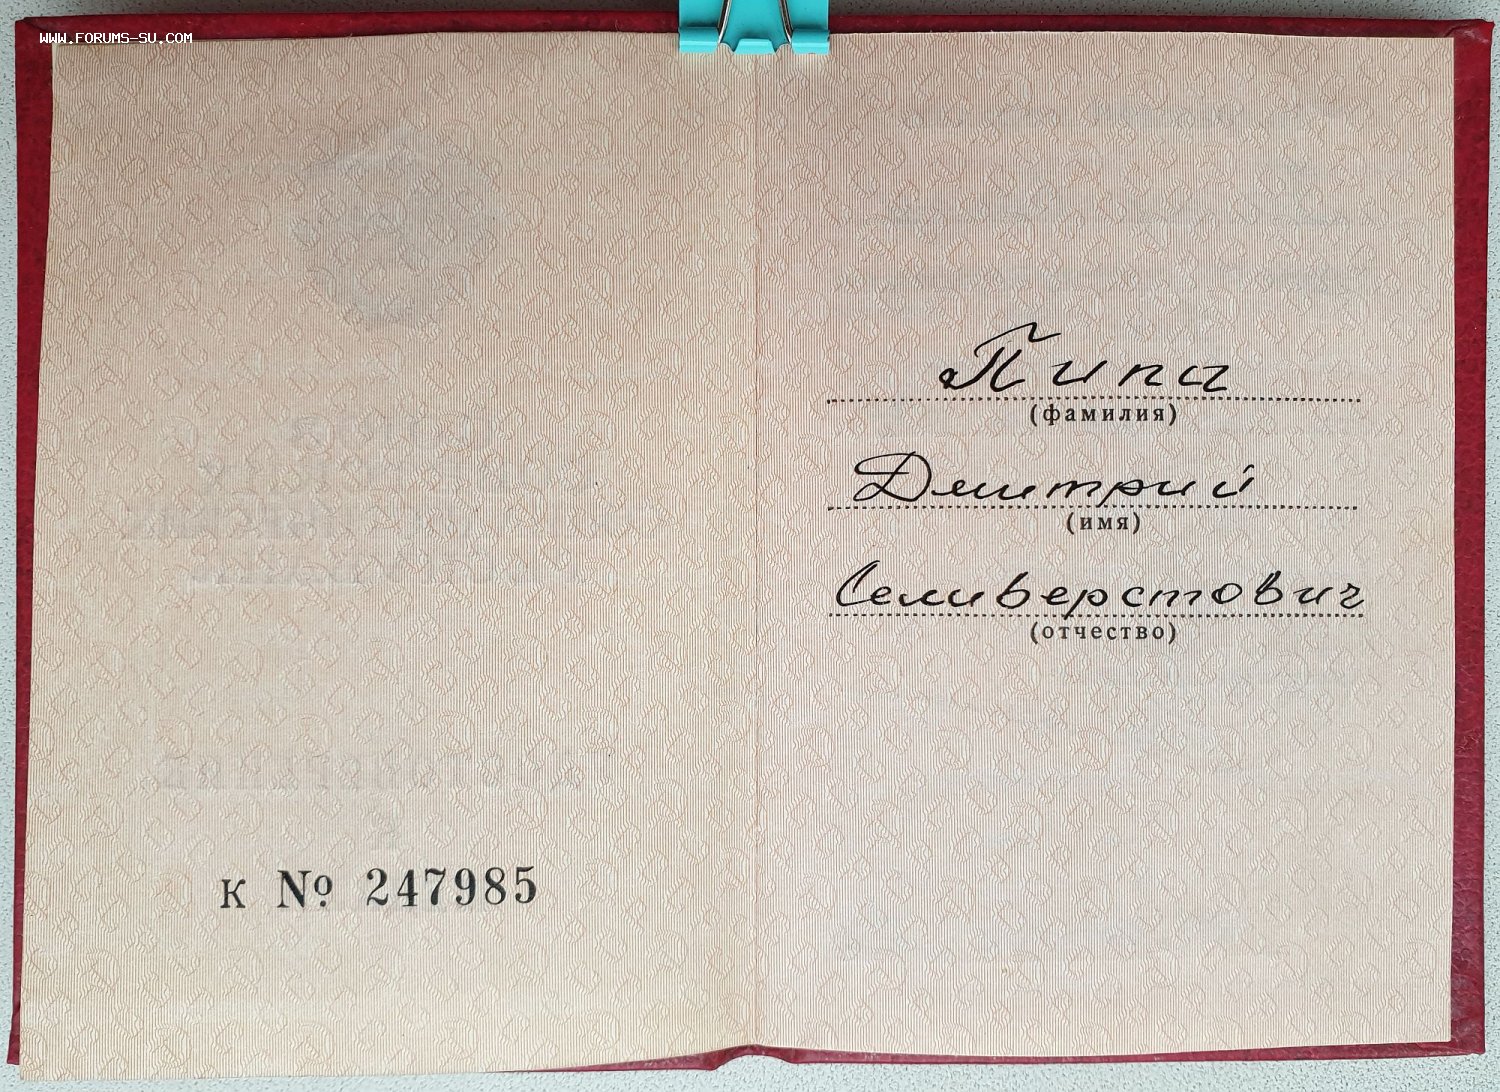 WWW.FORUMS-SU.COM
К № 247985
Пипа
(фамилия)
Дмитрий
(имя)
Селиверстович
(отчество)